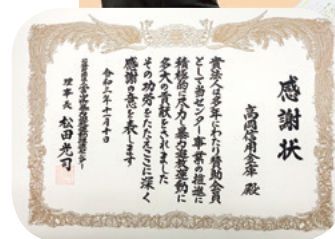 感謝状
高岡信用金庫 殿
貴法人は多年にわたり賛助会員
として当センター事業の推進に
積極的に尽力し暴力追放運動に
多大の貢献をされました
その功労をたたえここに深く
感謝の意を表します
令和三年十一月十日
理事長 松田光司